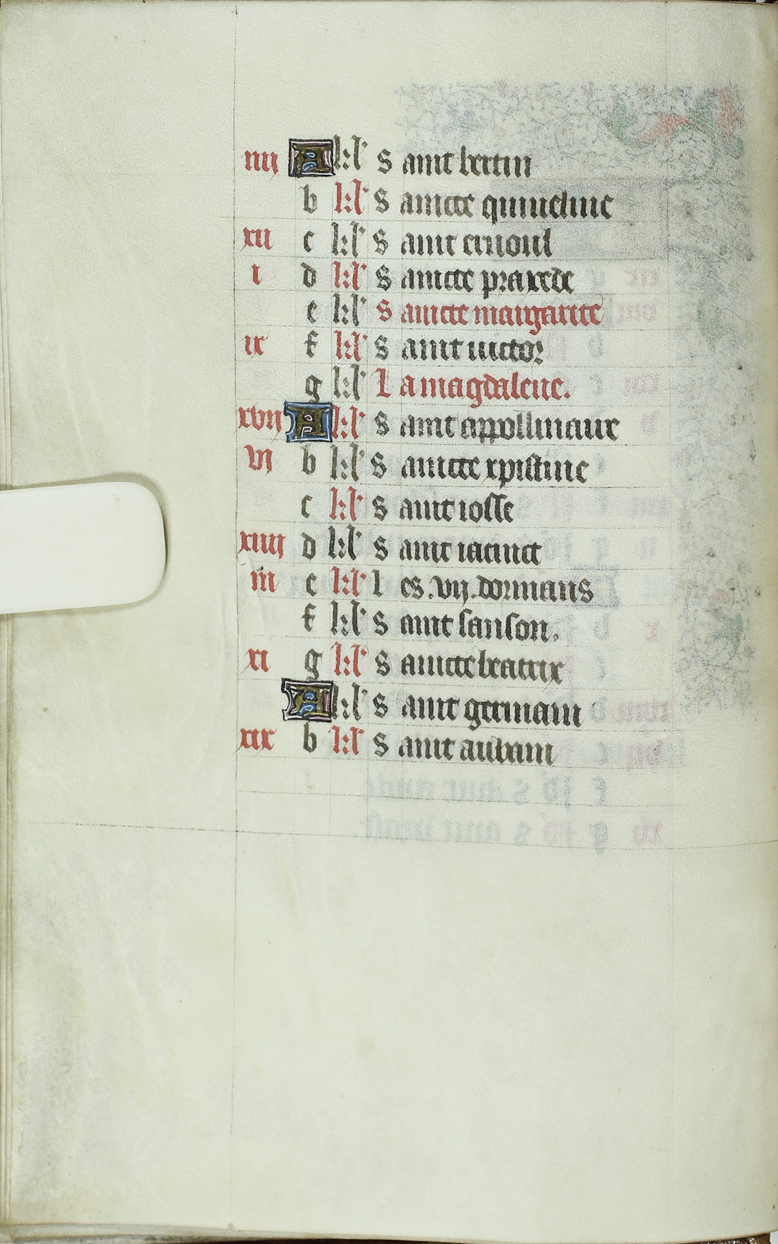 iiij A kl' Saint bertin
b kl' Saincte quineline
xii c kl' Saint ernoul
i d kl' Saincte praxede
e kl' Saincte margarite
ix f kl' Saint victor
g kl' La magdaleine.
xvij A kl' Saint appollinaire
vj b kl' Saincte xpistine
c kl' Saint iosse
xiiij d kl' Saint iacinct
iij e kl' les .vij. dormans
f kl' Saint sanson.
xi g kl' Saincte beatrix
A kl' Saint germain
xix b kl' Saint aubain